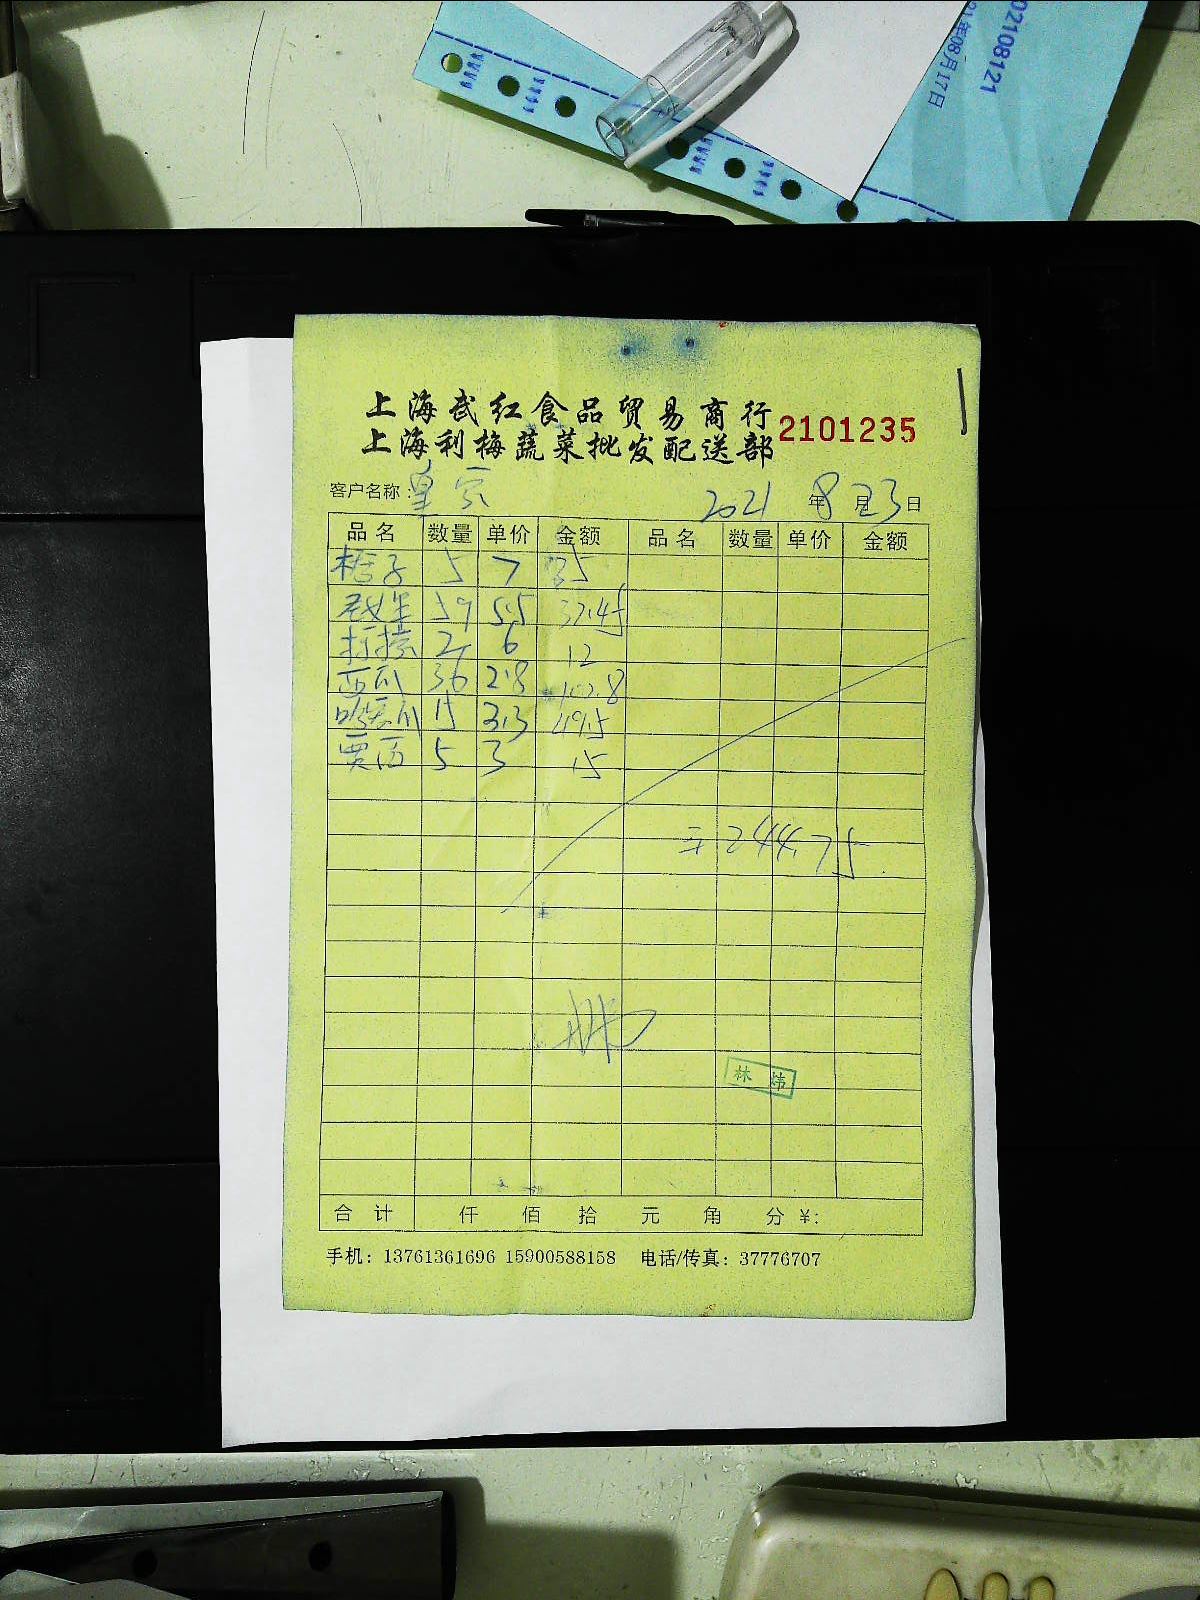 02108121
21年08月17日
上海武红食品贸易商行
上海利梅蔬菜批发配送部 2101235
客户名称: 皇家 2021 年 8 月 23 日
品名 数量 单价 金额 品名 数量 单价 金额
桔子 5 7 35
59 5.5 32.45
2 6 12
西瓜 36 2.8 100.8
哈密瓜 15 3.3 49.5
5 3 15
= 244.75
林炜
合计 仟 佰 拾 元 角 分 ¥:
手机: 13761361696 15900588158 电话/传真: 37776707